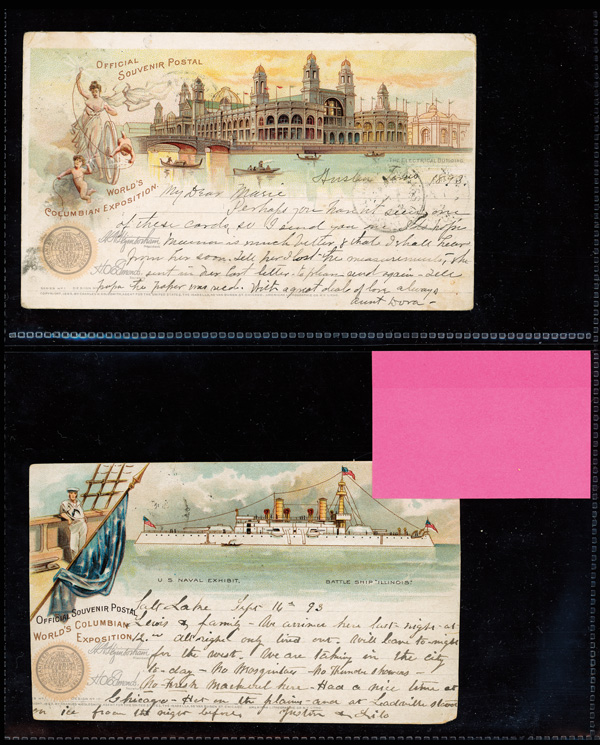 OFFICIAL
SOUVENIR POSTAL
THE ELECTRICAL BUILDING.
WORLD'S
COLUMBIAN EXPOSITION.
1893.
My Dear Marie
Perhaps you haven't seen one
of these cards, so I send you one. I hope
Mamma is much better, & that I shall hear
from her soon. Tell her I lost the measurements, she
sent in her last letter. to please send again - Tell
papa the paper was recd. With a great deal of love always
Aunt Dora -
U.S. NAVAL EXHIBIT.
BATTLE SHIP "ILLINOIS"
OFFICIAL SOUVENIR POSTAL
WORLD'S COLUMBIAN
EXPOSITION.
Salt Lake Sept 16th 93
Lewis & family - We arrived here last night at
12.00 all right only tired out. Will leave to-night
for the west. We are taking in the city
to-day - No Mosquitoes No Thunder showers -
No fresh Mackerel here - Had a nice time at
Chicago - Hot on the plains - and at Leadville
on ice from the night before.